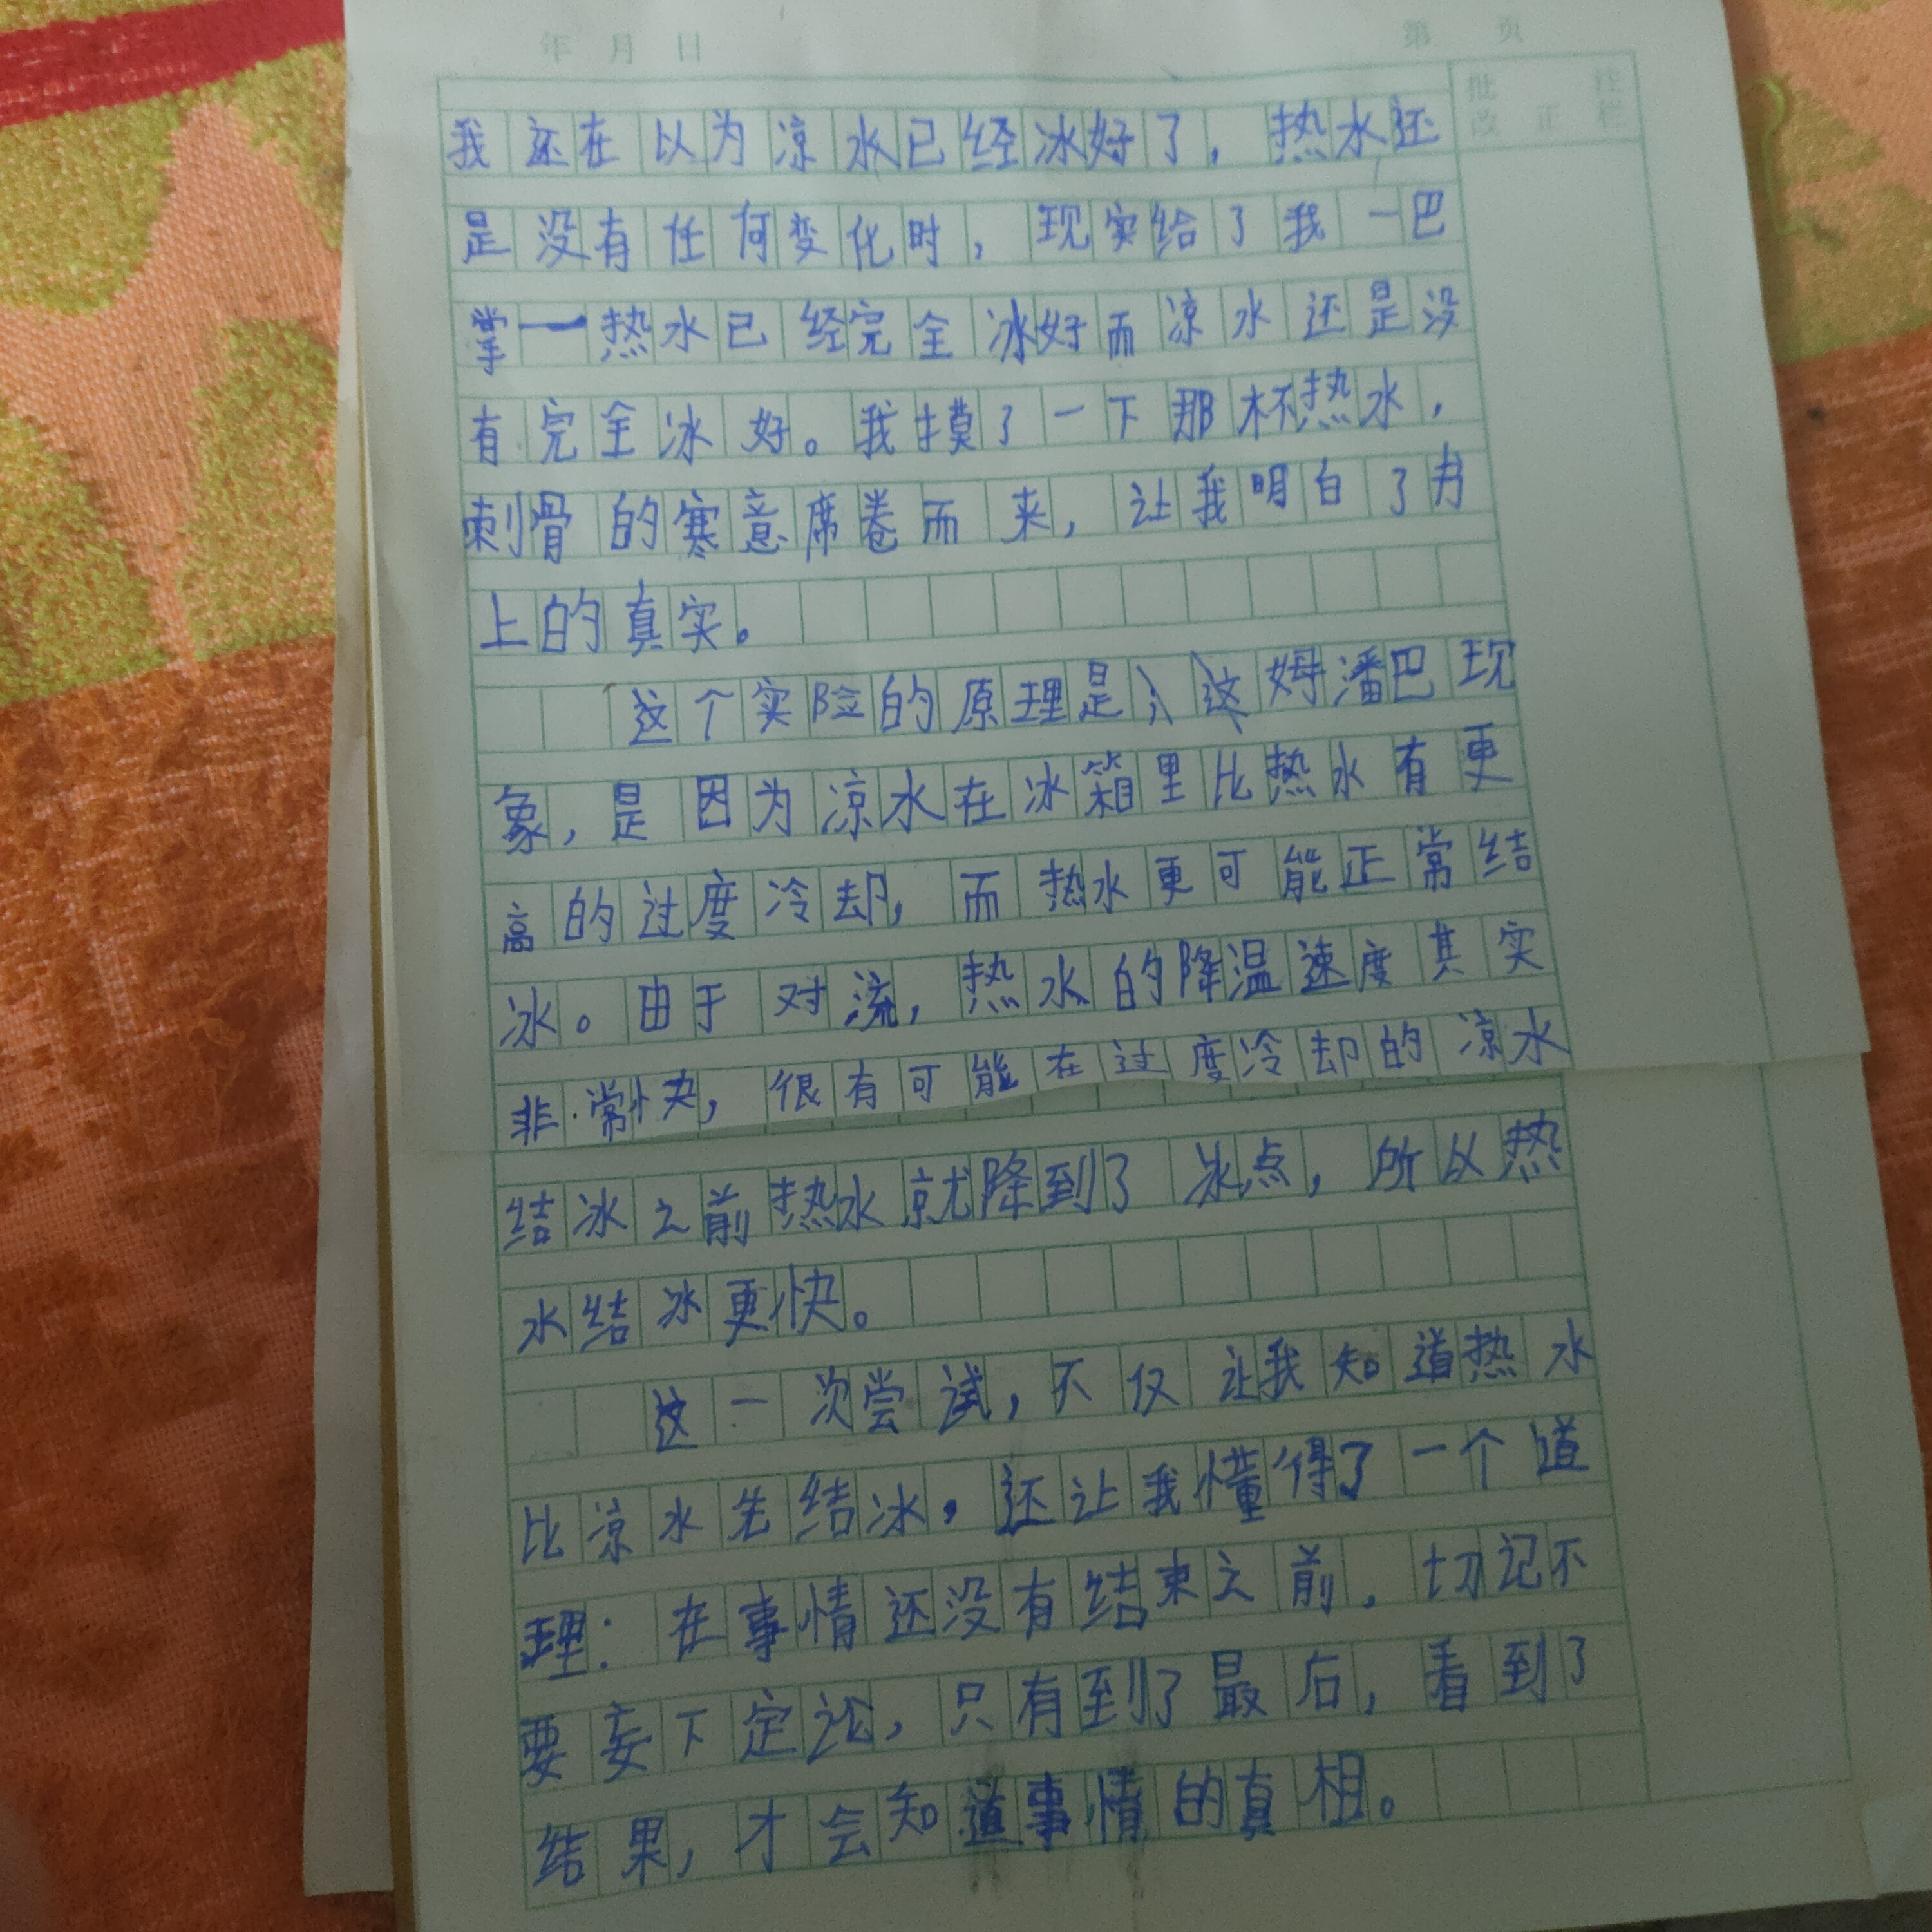 年 月 日
第 页
批 注
改 正 栏
我还在以为凉水已经冰好了，热水还
是没有任何变化时，现实给了我一巴
掌一热水已经完全冰好而凉水还是没
有完全冰好。我摸了一下那杯热水，
刺骨的寒意席卷而来，让我明白了书
上的真实。
这个实险的原理是：这姆潘巴现
象，是因为凉水在冰箱里比热水有更
高的过度冷却，而热水更可能正常结
冰。由于对流，热水的降温速度其实
非常快，很有可能在过度冷却的凉水
结冰之前热水就降到了冰点，所以热
水结冰更快。
这一次尝试，不仅让我知道热水
比凉水先结冰，还让我懂得了一个道
理：在事情还没有结束之前，切记不
要妄下定论，只有到了最后，看到了
结果，才会知道事情的真相。